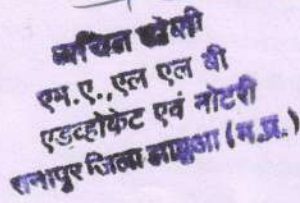 सचिन जोशी
एम.ए.,एल एल बी
एडव्होकेट एवं नोटरी
रानापुर जिला झाबुआ (म.प्र.)